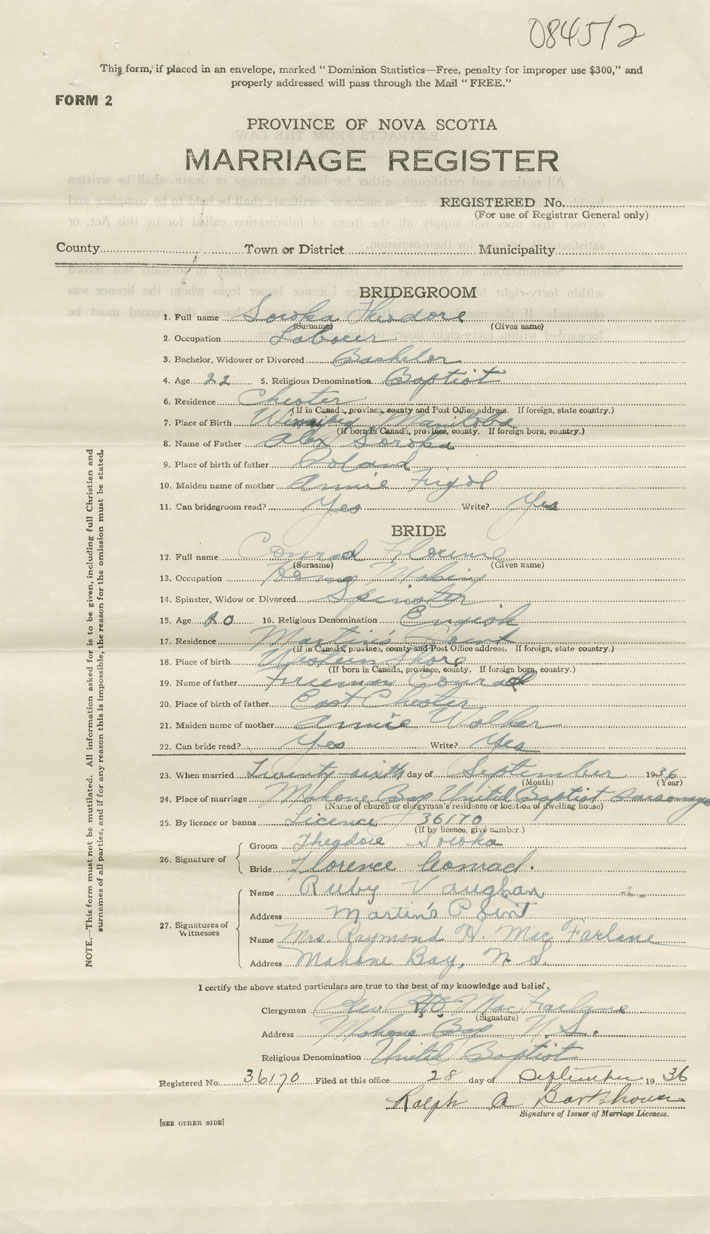 084512
This form, if placed in an envelope, marked "Dominion Statistics—Free, penalty for improper use $300," and
properly addressed will pass through the Mail "FREE."
FORM 2
PROVINCE OF NOVA SCOTIA
MARRIAGE REGISTER
REGISTERED No.
(For use of Registrar General only)
County Town or District Municipality
BRIDEGROOM
1. Full name Soroka Theodore
(Surname) (Given name)
2. Occupation Laborer
3. Bachelor, Widower or Divorced Bachelor
4. Age 22 5. Religious Denomination Baptist
6. Residence Chester
(If in Canada, province, county and Post Office address. If foreign, state country.)
7. Place of Birth Winnipeg Manitoba
(If born in Canada, province, county. If foreign born, country.)
8. Name of Father Alex Soroka
9. Place of birth of father Poland
10. Maiden name of mother Annie
11. Can bridegroom read? Yes Write? Yes
BRIDE
12. Full name Conrad Florence
(Surname) (Given name)
13. Occupation
14. Spinster, Widow or Divorced Spinster
15. Age 20 16. Religious Denomination English
17. Residence Martin's Point
(If in Canada, province, county and Post Office address. If foreign, state country.)
18. Place of birth Western Shore
(If born in Canada, province, county. If foreign born, country.)
19. Name of father Freeman Conrad
20. Place of birth of father East Chester
21. Maiden name of mother Annie Walker
22. Can bride read? Yes Write? Yes
23. When married Twenty-sixth day of September 1936
(Month) (Year)
24. Place of marriage Mahone Bay United Baptist Parsonage
(Name of church or clergyman's residence or location of dwelling house)
25. By licence or banns Licence 36170
(If by licence, give number.)
26. Signature of
Groom Theodore Soroka
Bride Florence Conrad.
27. Signatures of Witnesses
Name Ruby Vaughan
Address Martin's Point
Name Mrs. Raymond H. MacFarlane
Address Mahone Bay, N.S.
I certify the above stated particulars are true to the best of my knowledge and belief.
Clergyman Rev MacFarlane
(Signature)
Address Mahone Bay N.S.
Religious Denomination United Baptist
Registered No. 36170 Filed at this office 28 day of September 1936
Ralph A Barkhouse
Signature of Issuer of Marriage Licences.
[SEE OTHER SIDE]
NOTE.—This form must not be mutilated. All information asked for is to be given, including full Christian and
surnames of all parties, and if for any reason this is impossible, the reason for the omission must be stated.